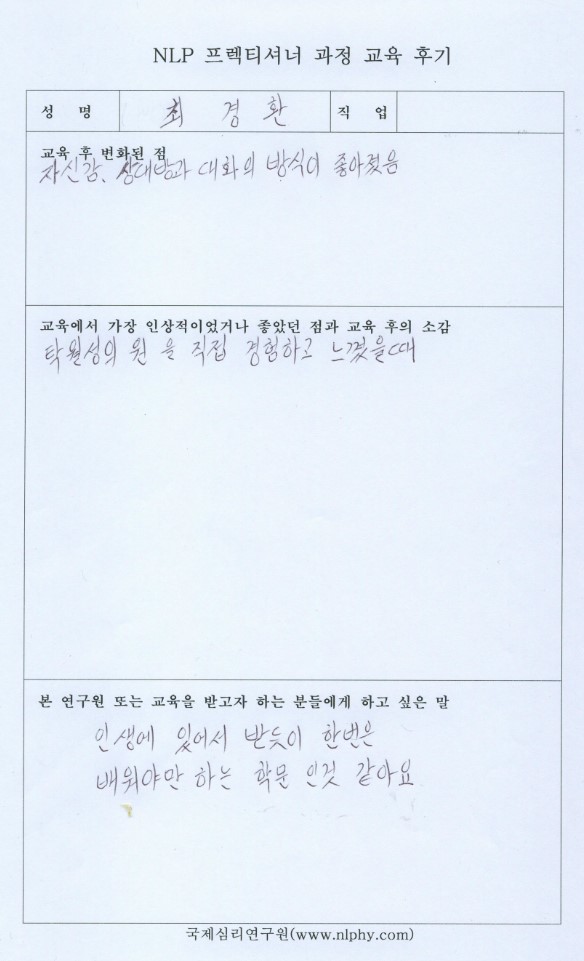 NLP 프렉티셔너 과정 교육 후기
성 명 최 경 환 직 업
교육 후 변화된 점
자신감, 상대방과 대화의 방식이 좋아졌음
교육에서 가장 인상적이었거나 좋았던 점과 교육 후의 소감
탁월성의 원 을 직접 경험하고 느꼈을때
본 연구원 또는 교육을 받고자 하는 분들에게 하고 싶은 말
인생에 있어서 반듯이 한번은
배워야만 하는 학문 인것 같아요
국제심리연구원(www.nlphy.com)